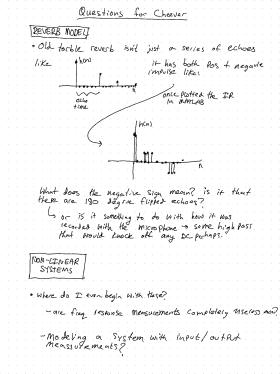 Questions for Cheever
REVERB MODEL
• Old torble reverb isn't just a series of echoes
like h(n) it has both pos + negative
impulse like:
n
echo
time
once plotted the IR
in MATLAB
h(n)
n
What does the negative sign mean? is it that
there are 180 degree flipped echoes?
↳ or is it something to do with how it was
recorded with the microphone → some high pass
that would knock off any DC perhaps.
NON-LINEAR
SYSTEMS
• where do I even begin with these?
- are freq response measurements completely useless now?
- Modeling a system with input/output
measurements?